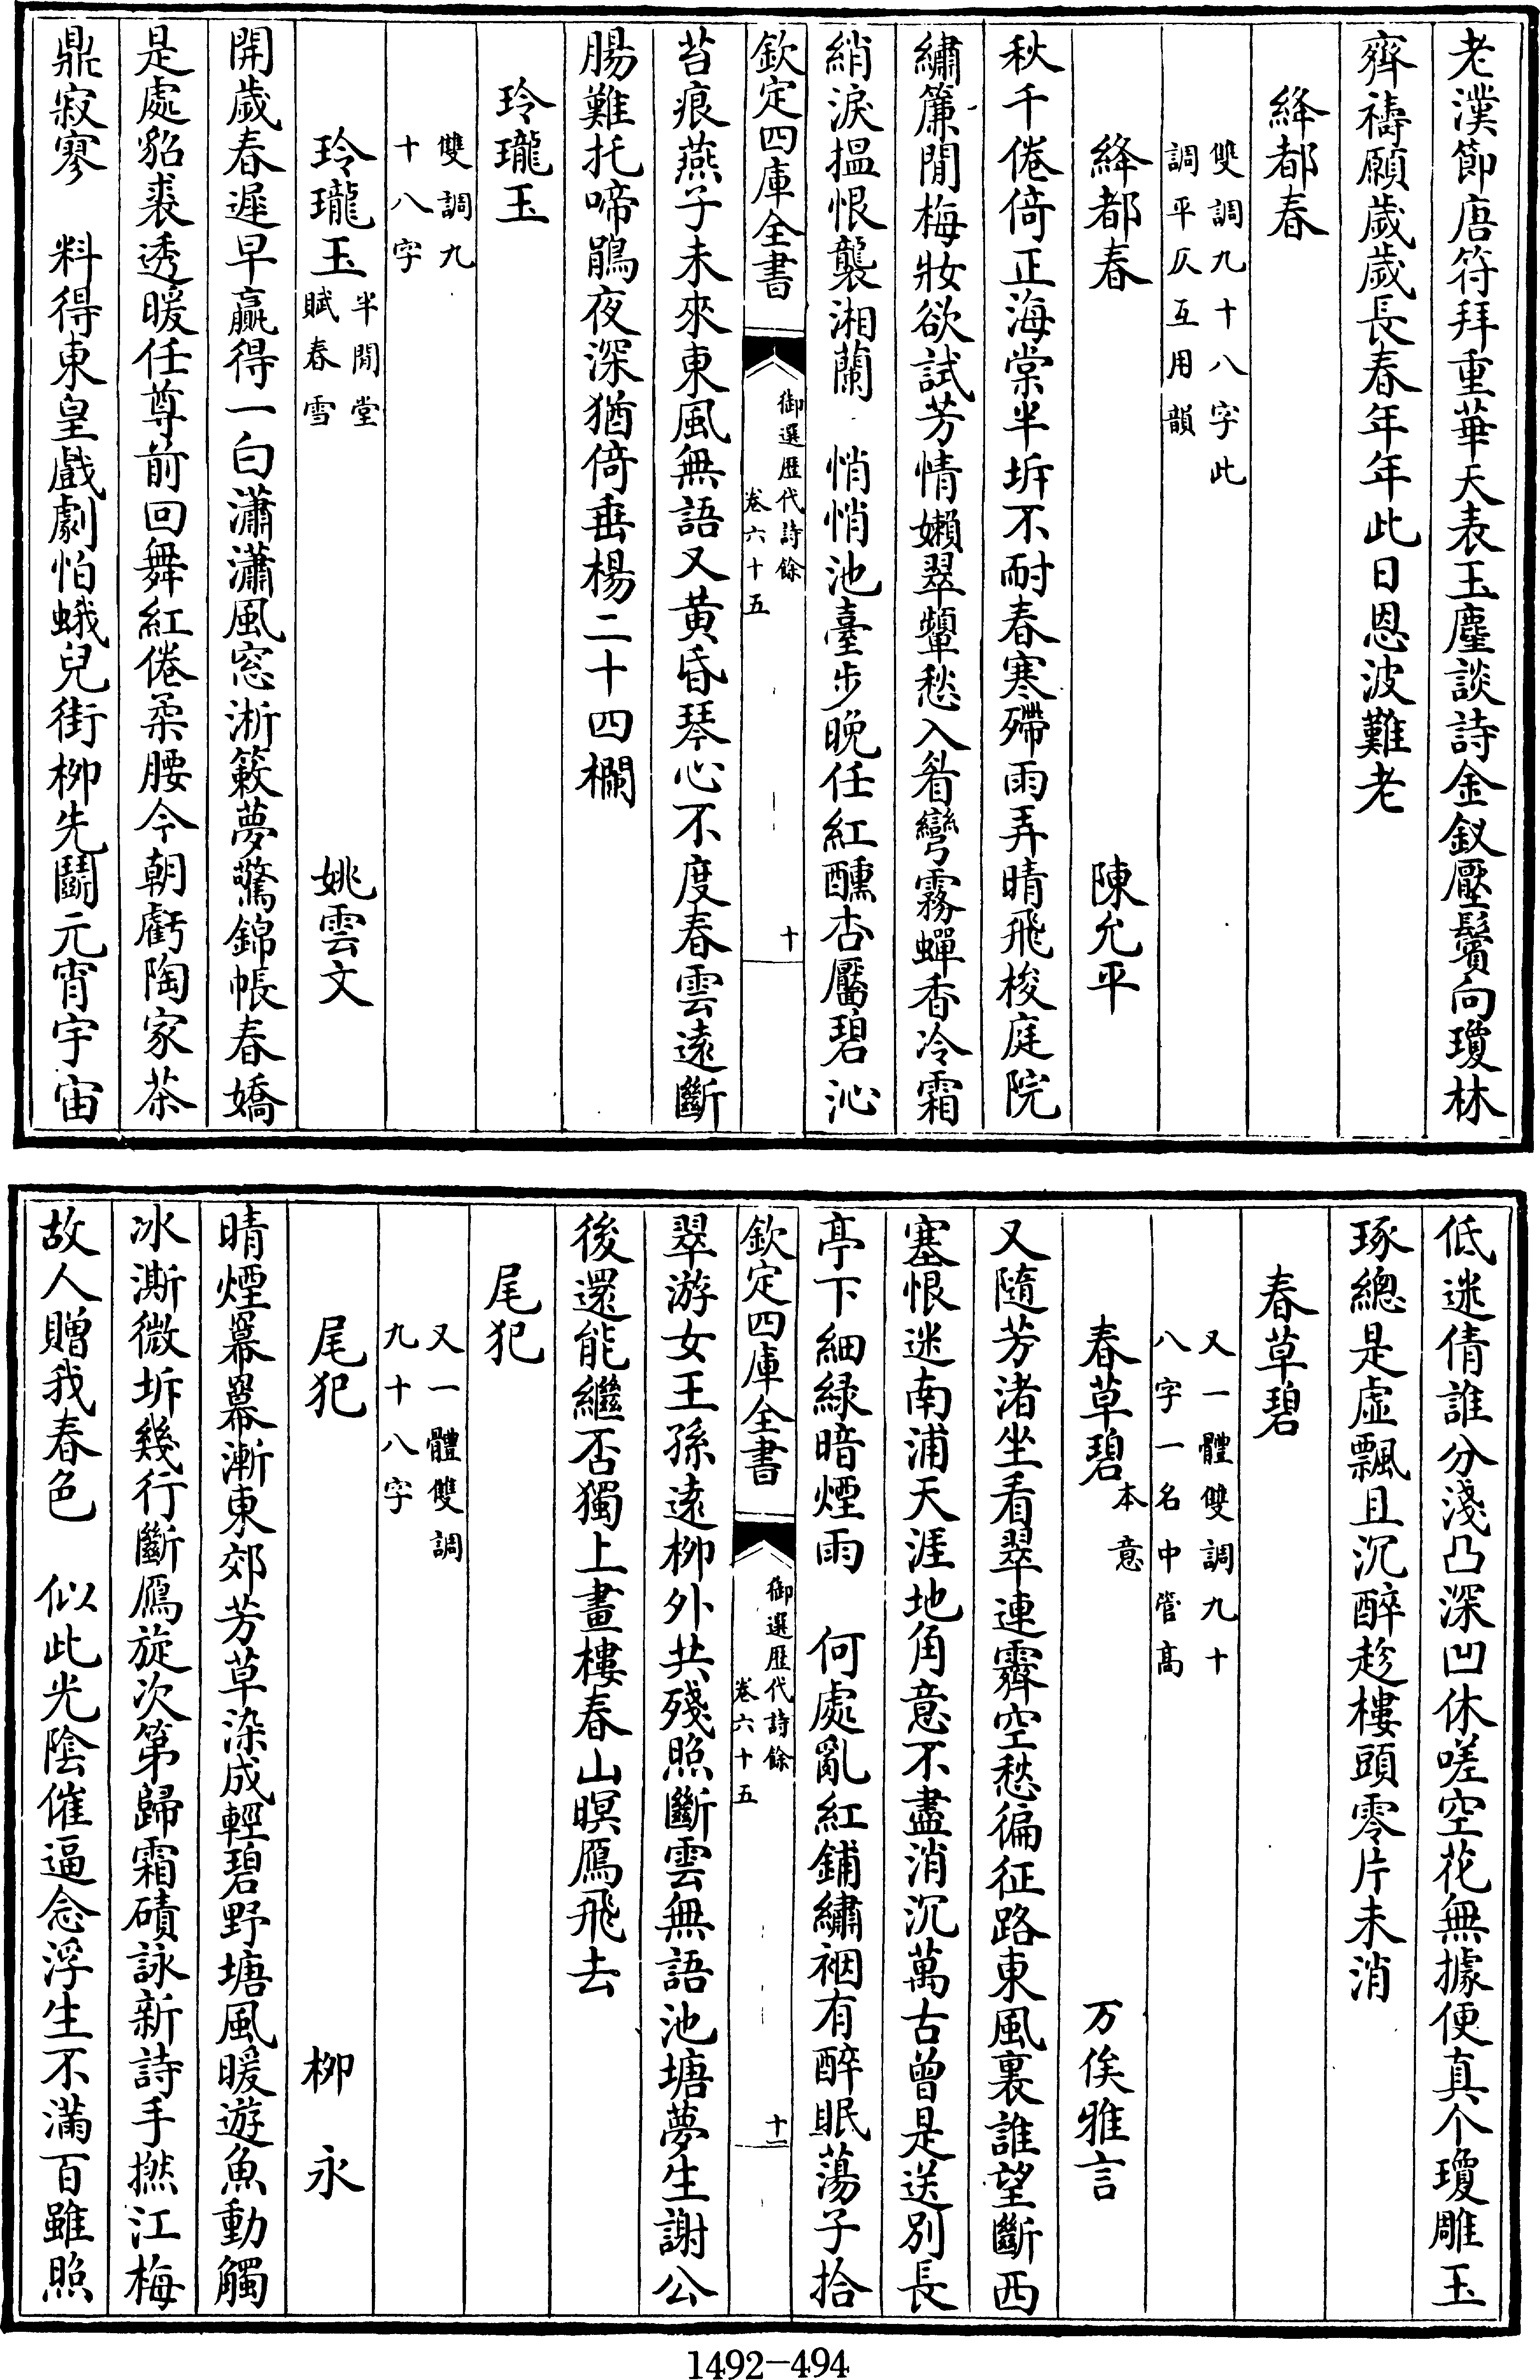 老漢節唐符拜重華天表玉麈談詩金釵壓鬢向瓊林
齊禱願歲歲長春年年此日恩波難老
絳都春
雙調九十八字此
調平仄互用韻
絳都春 陳允平
秋千倦倚正海棠半坼不耐春寒殢雨弄晴飛梭庭院
繡簾閒梅妝欲試芳情嬾翠顰愁入眉彎霧蟬香冷霜
綃淚揾恨襲湘蘭 悄悄池臺步晚任紅醺杏靨碧沁
欽定四庫全書 御選歷代詩餘 卷六十五 十
苔痕燕子未來東風無語又黄昏琴心不度春雲遠斷
腸難托啼鵑夜深猶倚垂楊二十四欄
玲瓏玉
雙調九
十八字
玲瓏玉 半閒堂賦春雪 姚雲文
開歲春遲早贏得一白瀟瀟風窓淅簌夢驚錦帳春嬌
是處貂裘透暖任尊前回舞紅倦柔腰今朝虧陶家茶
鼎寂寥 料得東皇戲劇怕蛾兒街柳先鬬元宵宇宙
低迷倩誰分淺凸深凹休嗟空花無據便真个瓊雕玉
琢總是虚飄且沉醉趁樓頭零片未消
春草碧
又一體雙調九十
八字一名中管髙
春草碧 本意 万俟雅言
又隨芳渚坐看翠連霽空愁徧征路東風裏誰望斷西
塞恨迷南浦天涯地角意不盡消沉萬古曾是送別長
亭下細緑暗煙雨 何處亂紅鋪繡裀有醉眠蕩子拾
欽定四庫全書 御選歷代詩餘 卷六十五 十一
翠游女王孫遠柳外共殘照斷雲無語池塘夢生謝公
後還能繼否獨上畫樓春山暝鴈飛去
尾犯
又一體雙調
九十八字
尾犯 柳永
晴煙羃羃漸東郊芳草染成輕碧野塘風暖遊魚動觸
冰澌微坼幾行斷鴈旋次第歸霜磧詠新詩手撚江梅
故人贈我春色 似此光陰催逼念浮生不滿百雖照
1492-494